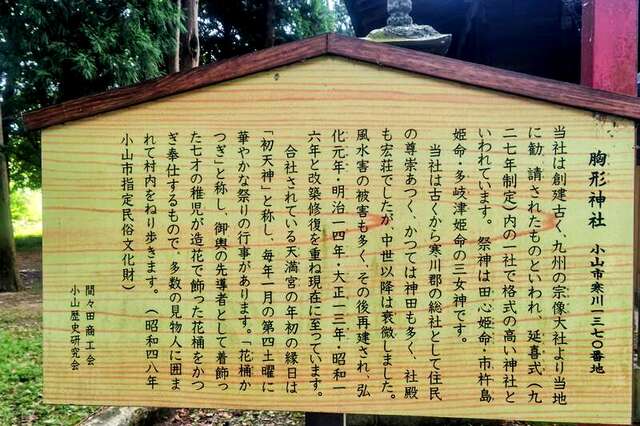 胸形神社 小山市寒川一三七〇番地
当社は創建古く、九州の宗像大社より当地
に勧請されたものといわれ、延喜式（九
二七年制定）内の一社で格式の高い神社と
いわれています。祭神は田心姫命・市杵島
姫命・多岐津姫命の三女神です。
当社は古くから寒川郡の総社として住民
の尊崇あつく、かつては神田も多く、社殿
も宏荘でしたが、中世以降は衰微しました。
風水害の被害も多く、その後再建され、弘
化元年・明治一四年・大正一三年・昭和一
六年と改築修復を重ね現在に至っています。
合社されている天満宮の年初の縁日は
「初天神」と称し、毎年一月の第四土曜に
華やかな祭りの行事があります。「花桶か
つぎ」と称し、御輿の先導者として着飾っ
た七才の稚児が造花で飾った花桶をかつ
ぎ奉仕するもので、多数の見物人に囲ま
れて村内をねり歩きます。（昭和四八年
小山市指定民俗文化財）
間々田商工会
小山歴史研究会